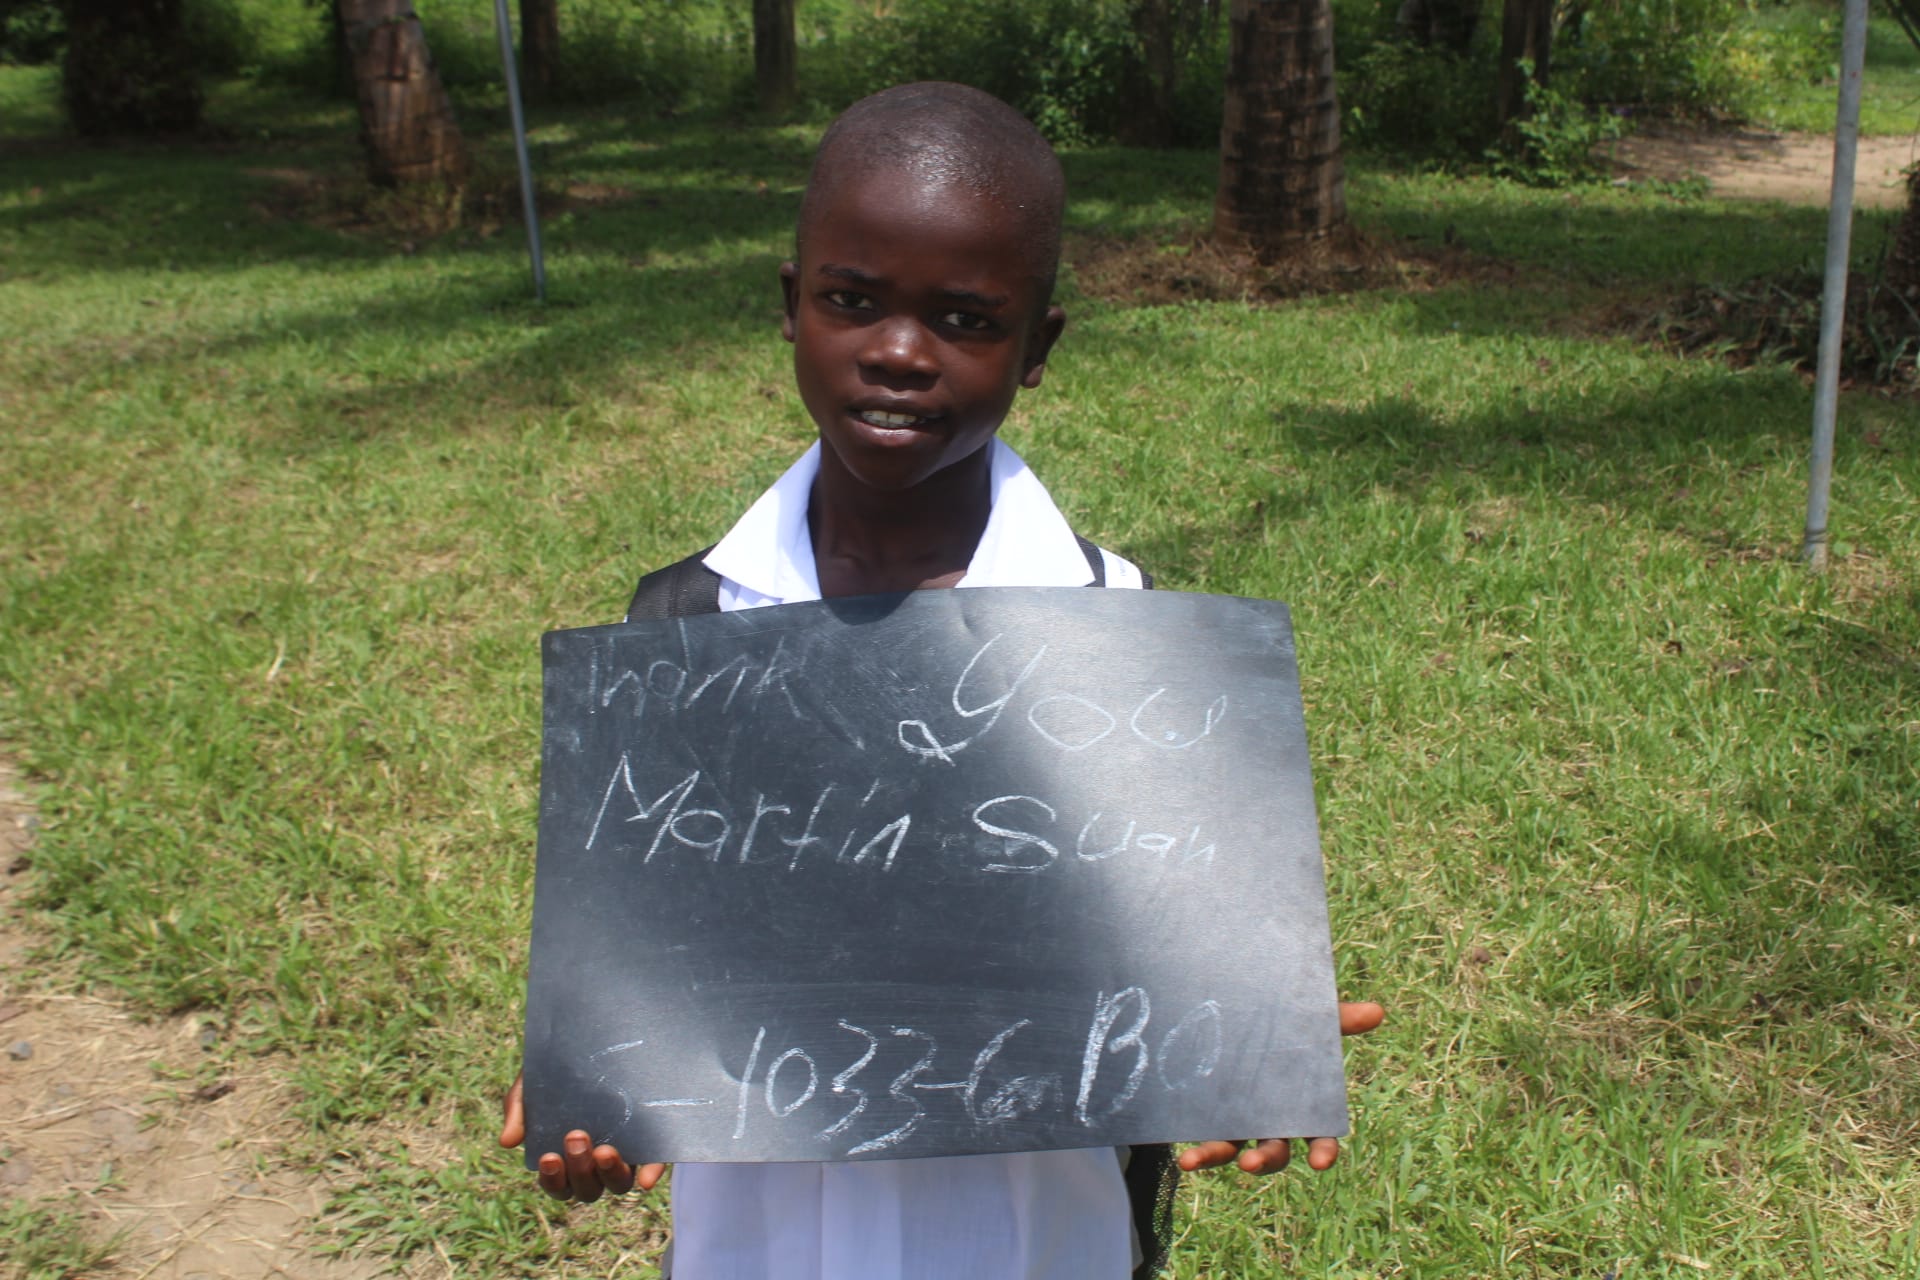 Thank You
Martin Suah
5-1033-6 BO